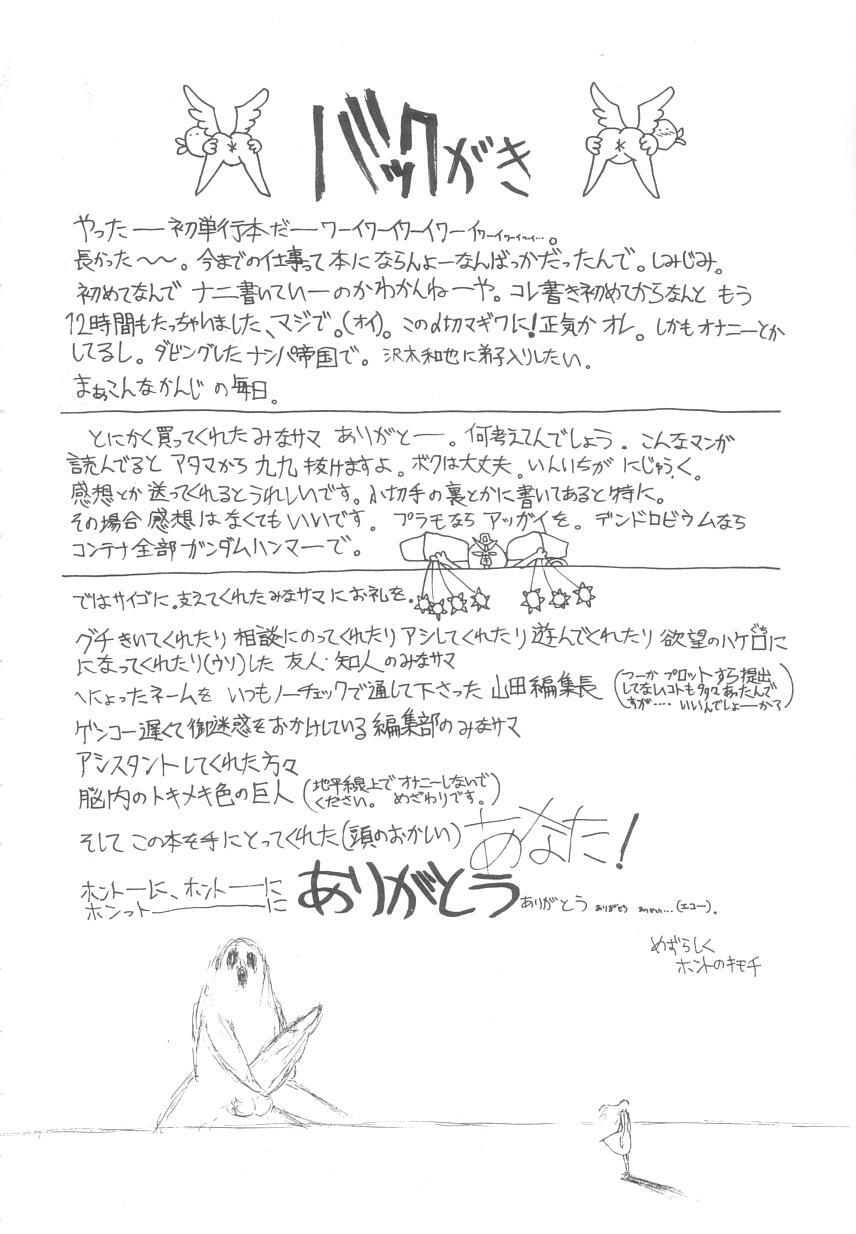 バックがき
やったー初単行本だーワーイワーイワーイワーイワーイワーイワーイ…。
長かった〜〜。今までの仕事って本にならんよーなんばっかだったんで。しみじみ。
初めてなんでナニ書いていーのかわかんねーや。コレ書き初めてからなんともう
12時間もたっちゃいました、マジで。(オイ)。この〆切マギワに!正気かオレ。しかもオナニーとか
してるし。ダビングしたナンパ帝国で。沢木和也に弟子入りしたい。
まぁこんなかんじの毎日。
とにかく買ってくれたみなサマ ありがとー。何考えてんでしょう。こんなマンガ
読んでるとアタマから九九抜けますよ。ボクは大丈夫。いんいちがにじゅうく。
感想とか送ってくれるとうれしいです。小切手の裏とかに書いてあると特に。
その場合感想はなくてもいいです。プラモならアッガイを。デンドロビウムなら
コンテナ全部ガンダムハンマーで。
ではサイゴに。支えてくれたみなサマにお礼を。
グチきいてくれたり相談にのってくれたりアシしてくれたり遊んでくれたり欲望のハケ口に
ぐち
になってくれたり(ウソ)した友人・知人のみなサマ
へにょったネームをいつもノーチェックで通して下さった山田編集長
(つーかプロットすら提出
してないコトも多々あったんで
すが….いいんでしょーか?)
ゲンコー遅くて御迷惑をおかけしている編集部のみなサマ
アシスタントしてくれた方々
脳内のトキメキ色の巨人
(地平線上でオナニーしないで
ください。めざわりです。)
そしてこの本を手にとってくれた(頭のおかしい)あなた!
ホントーに、ホントーーに
ホンっトーーーーに
ありがとうありがとう ありがとう ありがとう…(エコー)。
めずらしく
ホントのキモチ